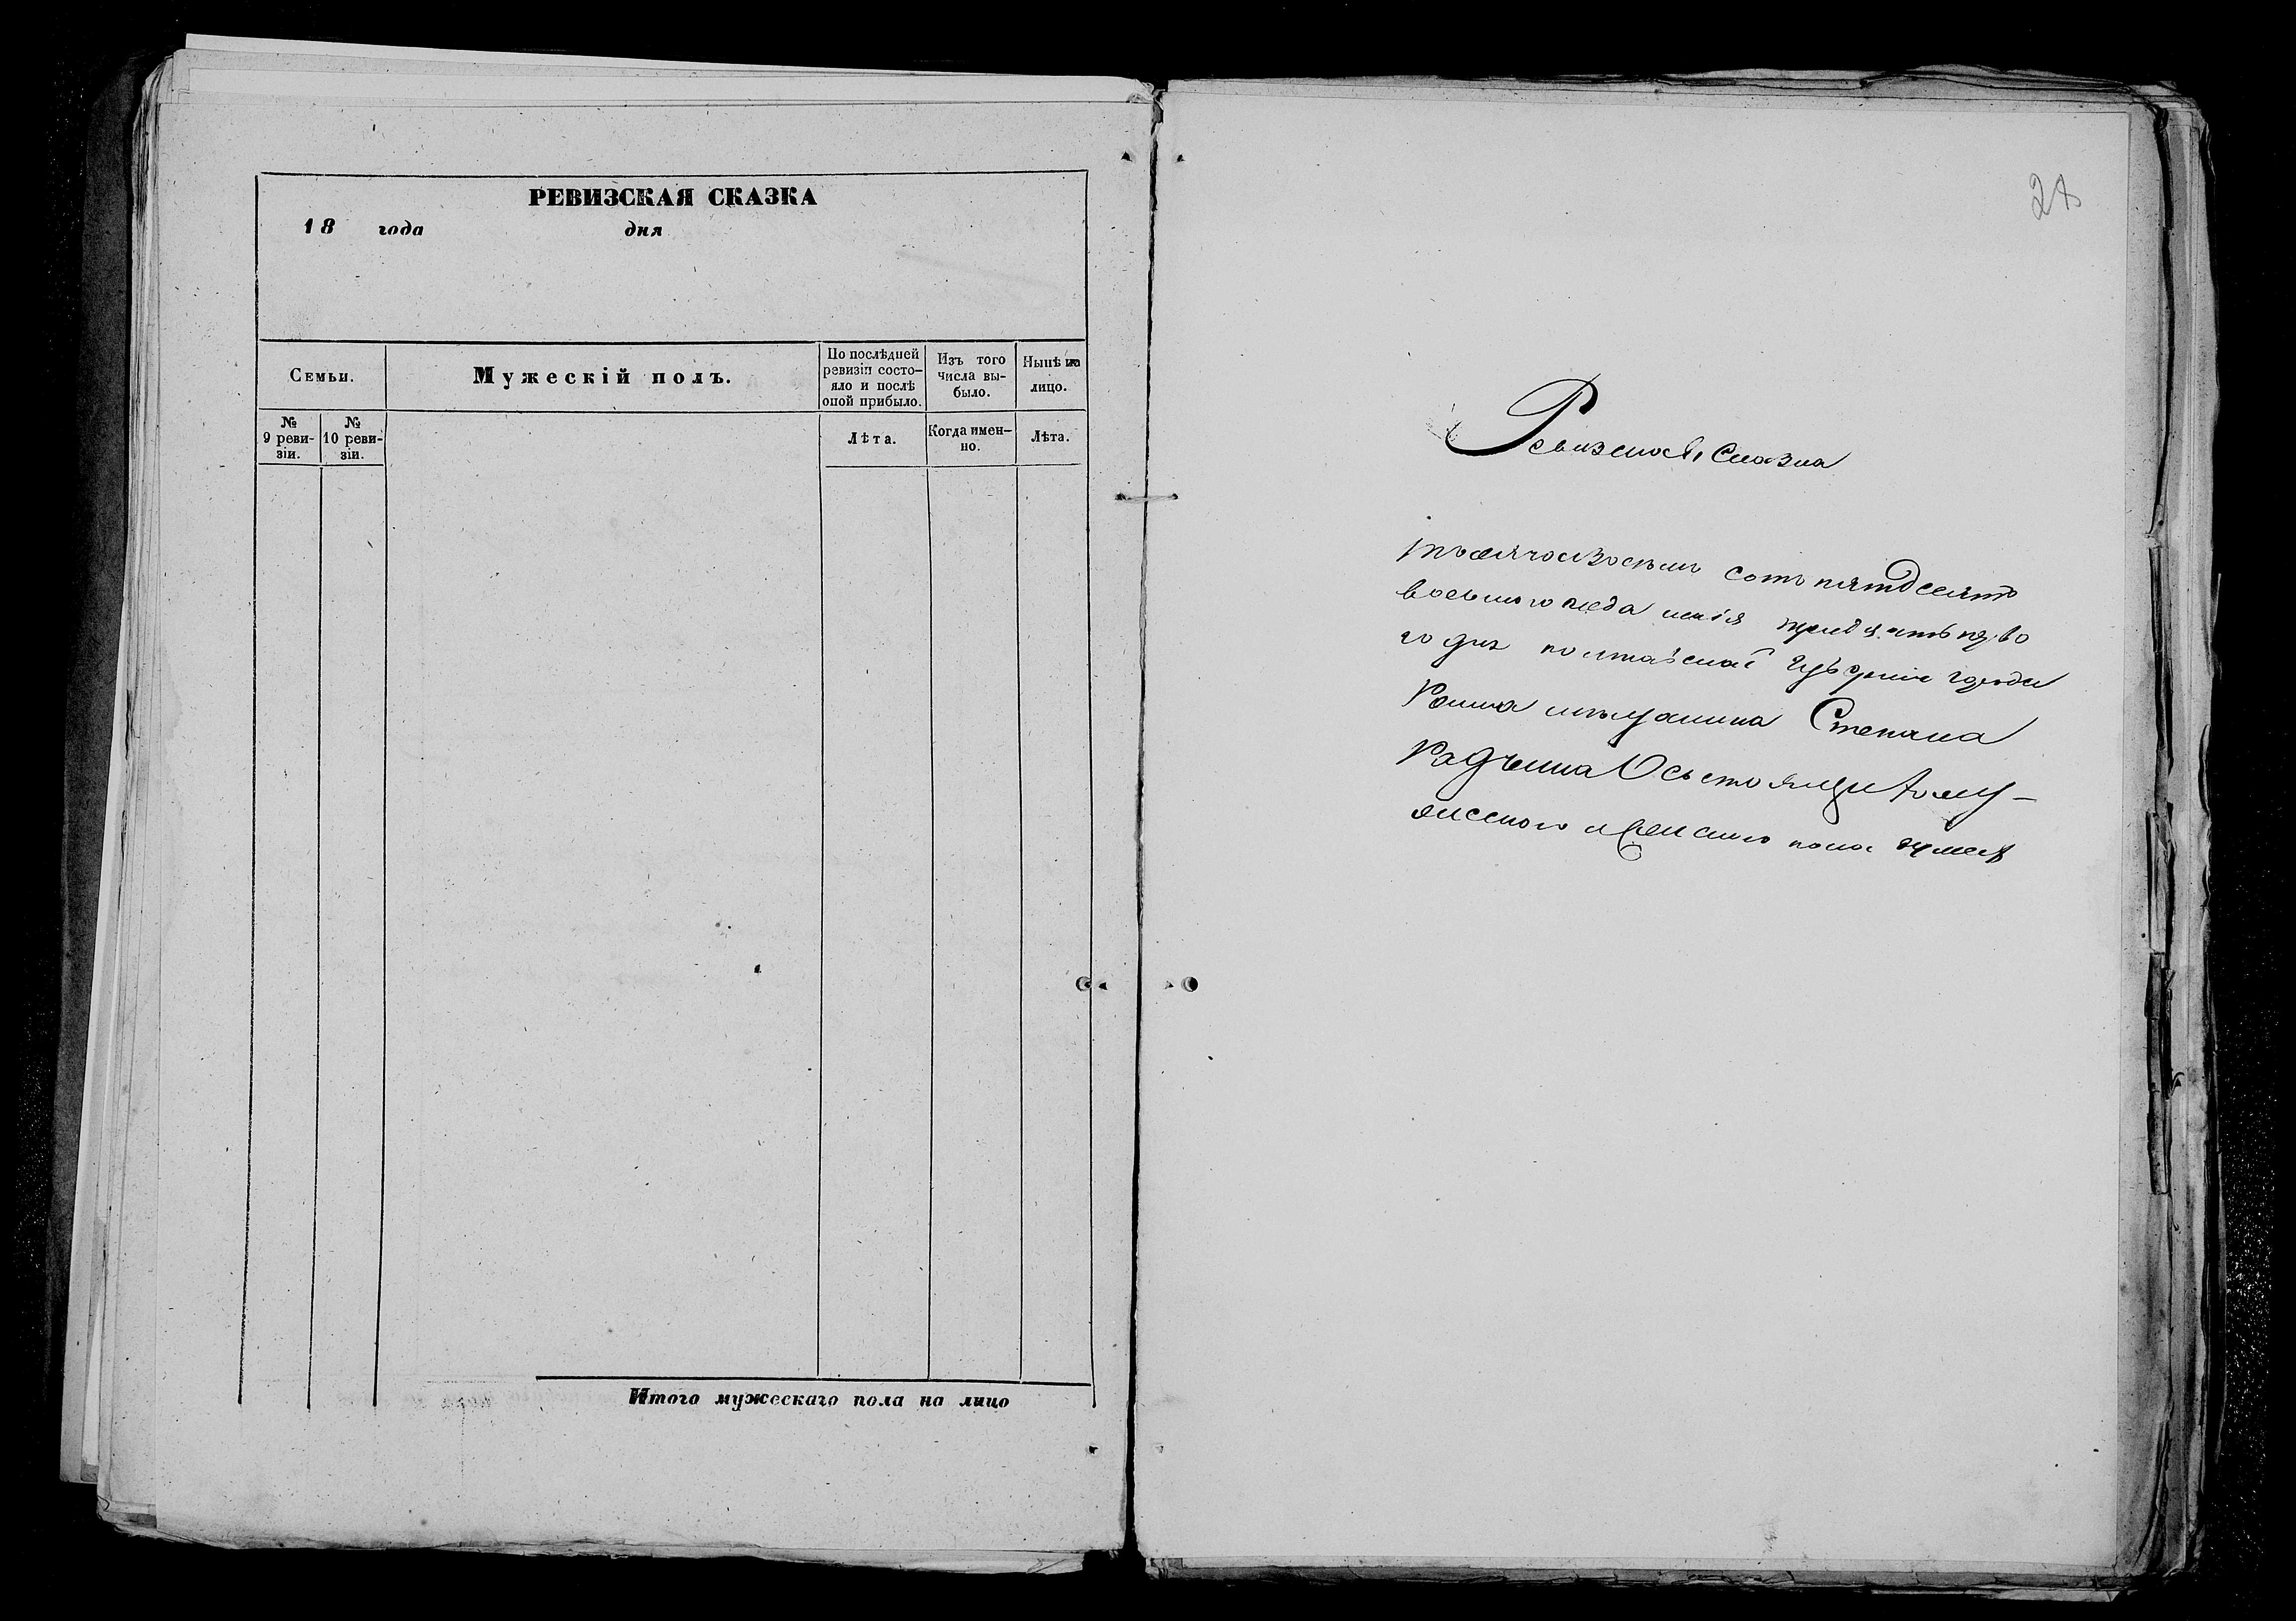 РЕВИЗСКАЯ СКАЗКА
18 года дня
Семьи.
Мужескій полъ.
По послѣдней ревизіи состо-
яло и послѣ
оной прибыло.
Изъ того
числа вы-
было.
Нынѣ на
лицо.
№
9 реви-
зіи.
№
10 реви-
зіи.
Лѣта.
Когда имен-
но.
Лѣта.
Итого мужескаго пола на лицо
27
Ревизская Сказка
тысяча восемъ сотъ пятдесято
восьмого года маія перво
го дня полтавской губерніи города
Ромна мѣщанина Степана
о состоящи
женского пола